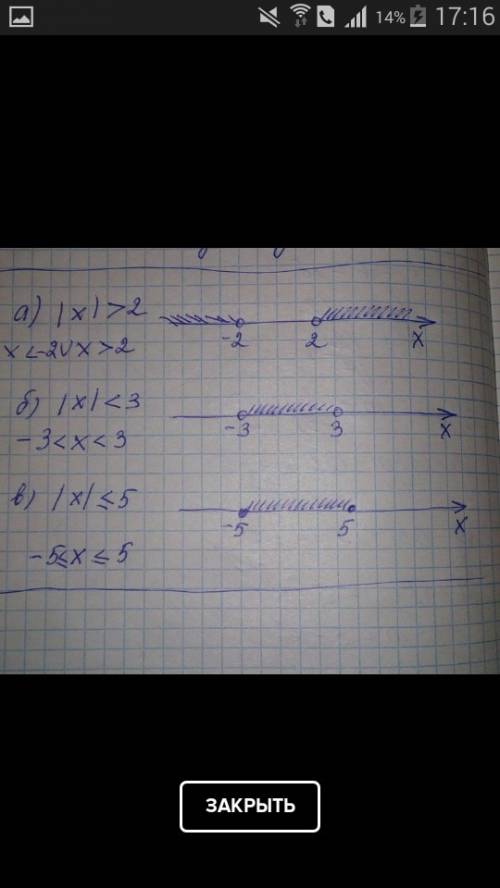 14% 17:16
а) |x| > 2
-2 2 x
x < -2 V x > 2
б) |x| < 3
-3 3 x
-3 < x < 3
в) |x| ≤ 5
-5 5 x
-5 ≤ x ≤ 5
ЗАКРЫТЬ